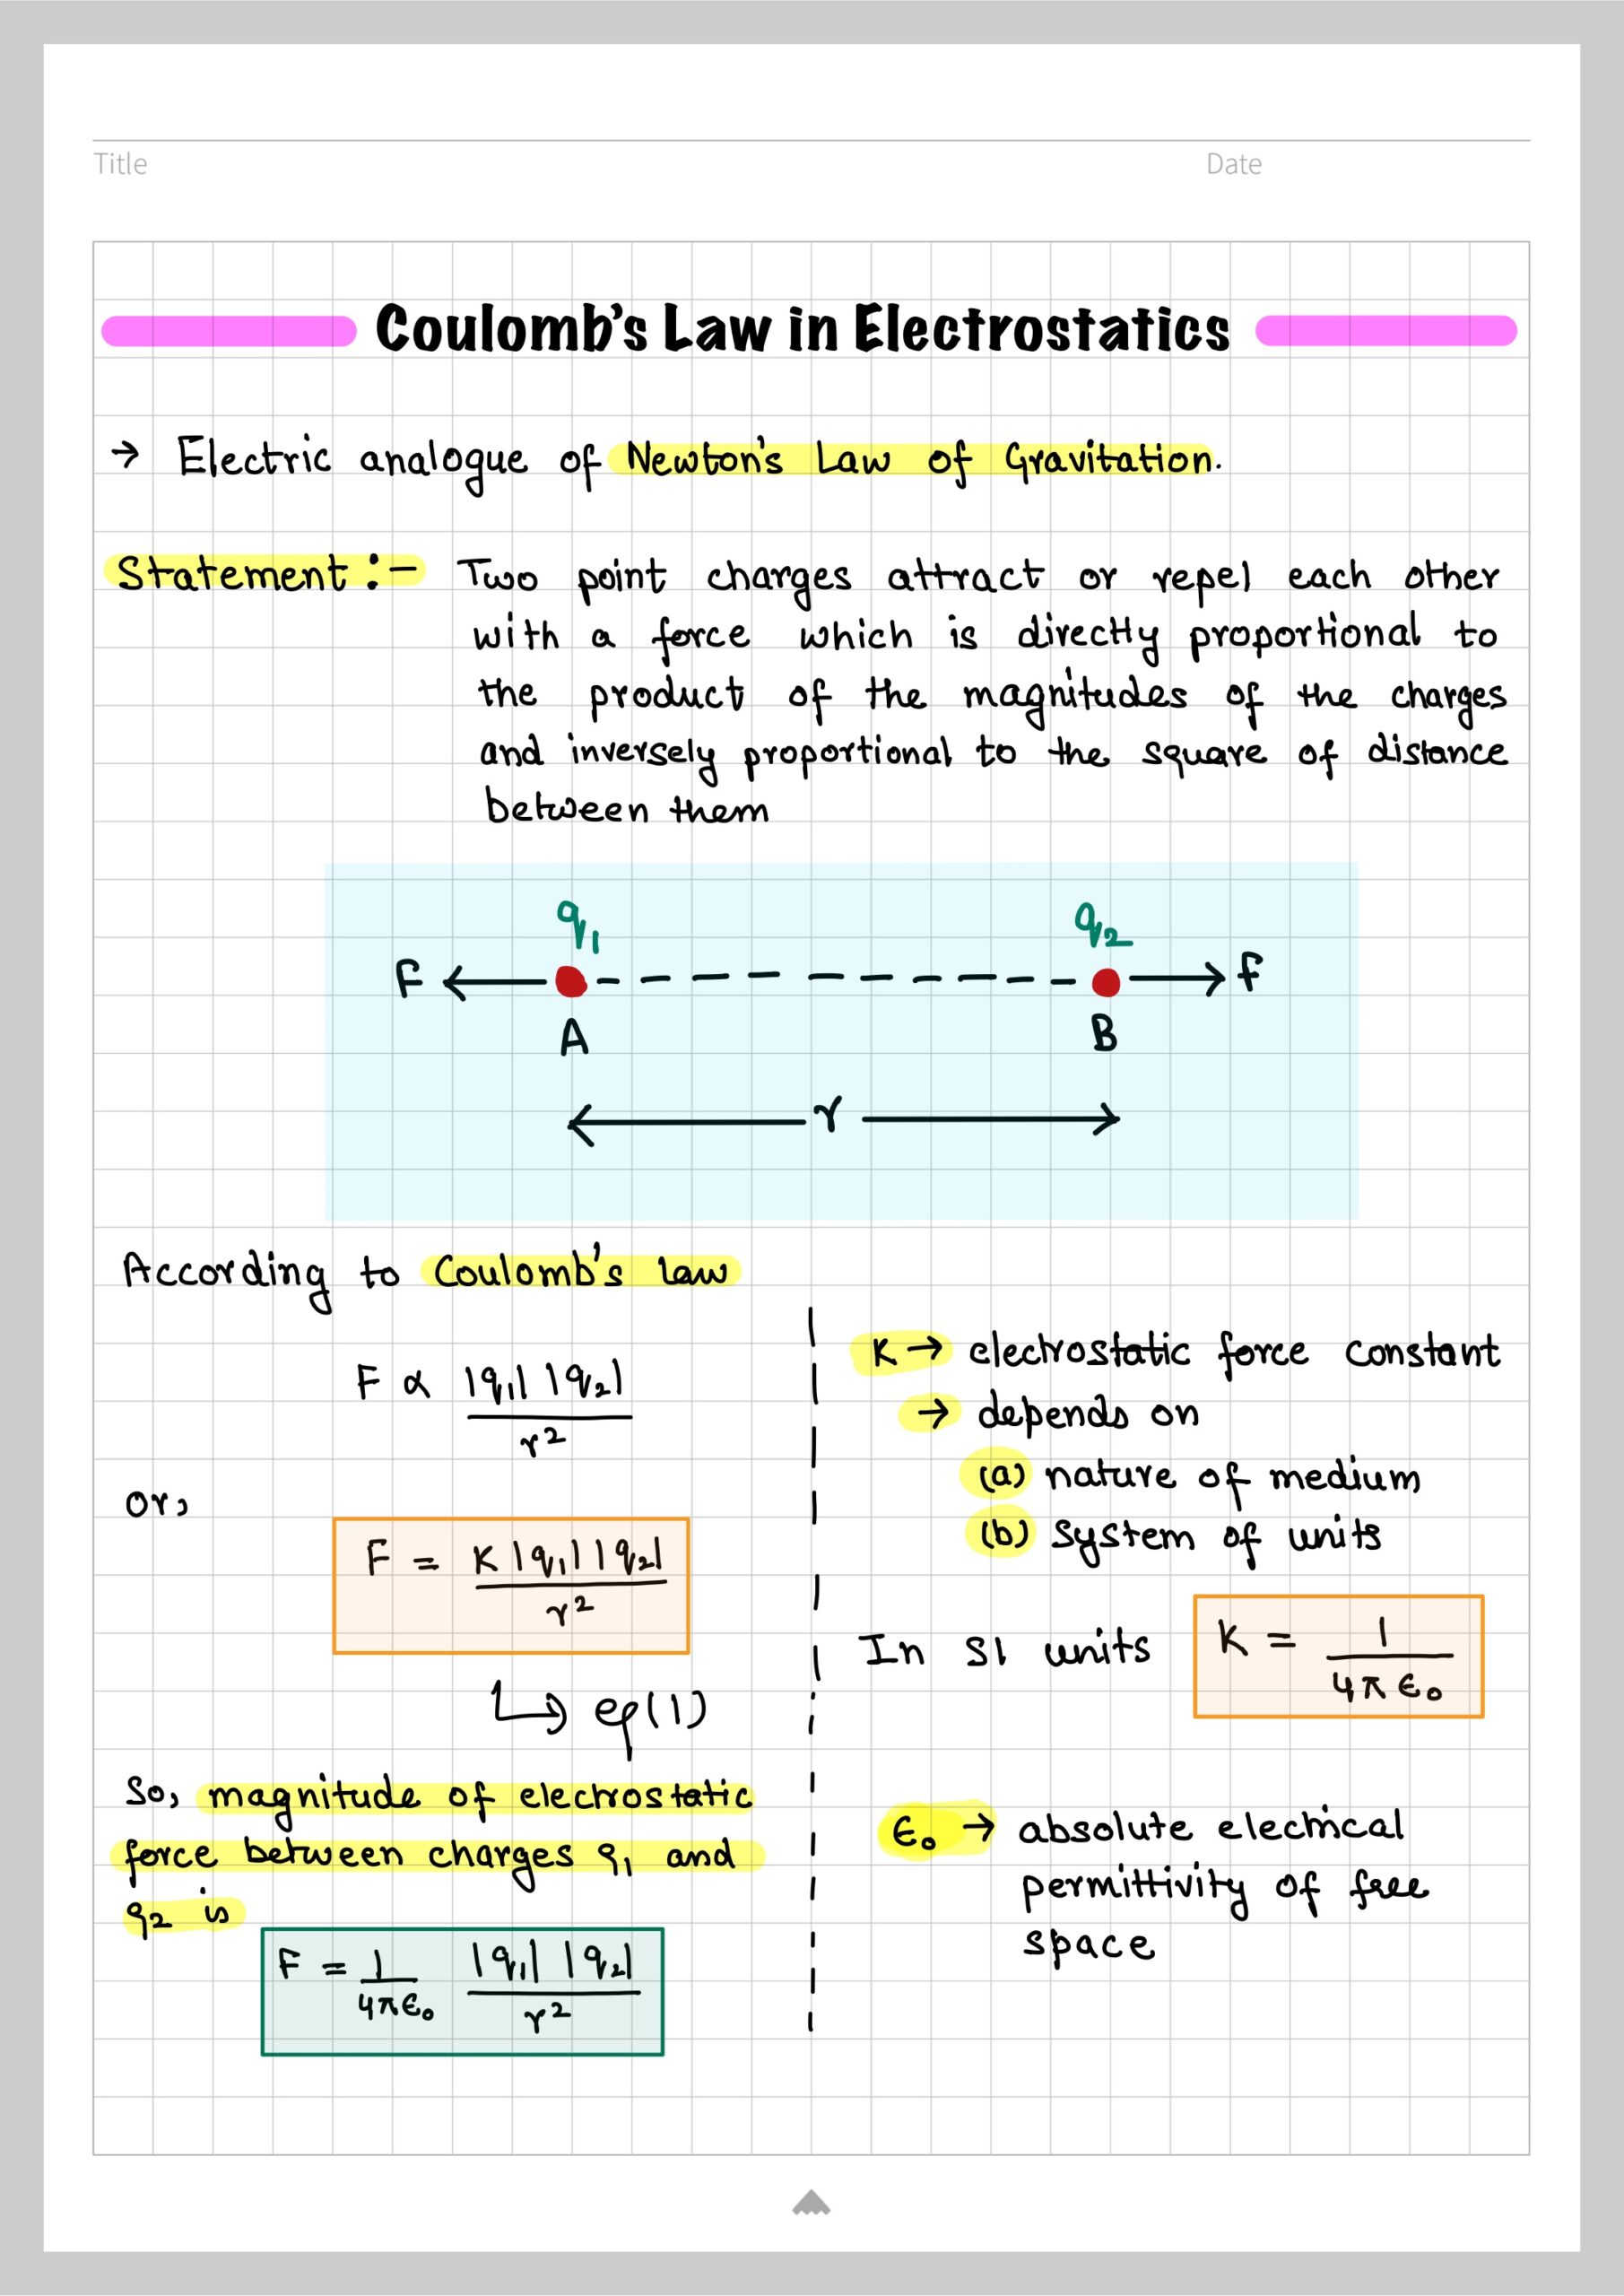 Title
Date
Coulomb's Law in Electrostatics
→ Electric analogue of Newton's Law of Gravitation.
Statement :- Two point charges attract or repel each other
with a force which is directly proportional to
the product of the magnitudes of the charges
and inversely proportional to the square of distance
between them
q₁ q₂
F F
A B
r
According to Coulomb's law
F ∝ |q₁| |q₂| / r²
or,
F = K |q₁| |q₂| / r²
↳ eq(1)
So, magnitude of electrostatic
force between charges q₁ and
q₂ is
F = 1/4πϵ₀ |q₁| |q₂| / r²
K → electrostatic force constant
→ depends on
(a) nature of medium
(b) system of units
In SI units K = 1/4πϵ₀
ϵ₀ → absolute electrical
permittivity of free
space